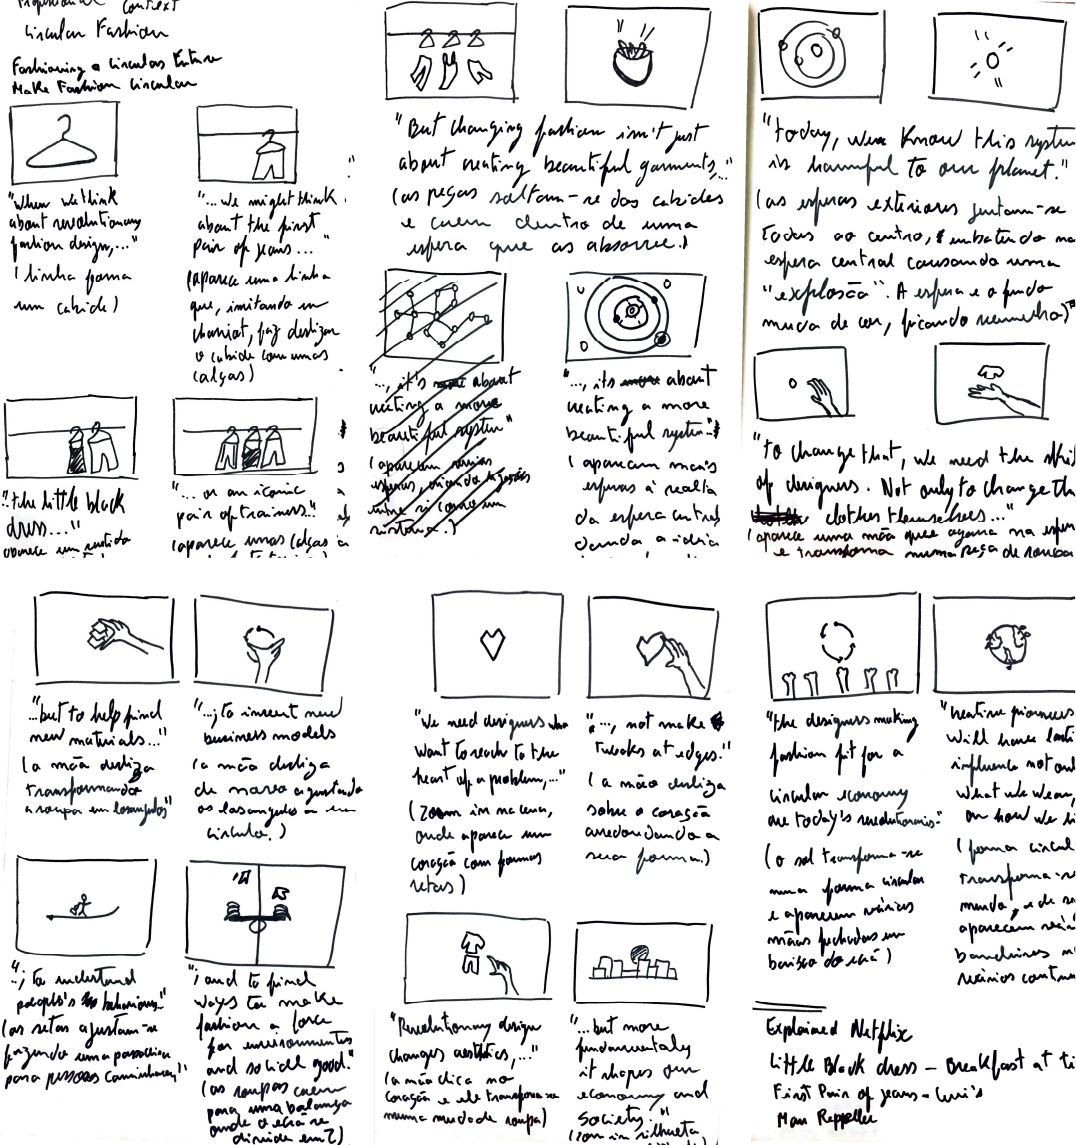 Professional Context
Circular Fashion
Fashioning a Circular Future
Make Fashion Circular
"When we think
about revolutionary
fashion design,..."
(linha forma
um cabide)
"...we might think
about the first
pair of jeans..."
(aparece uma linha
que, imitando um
charriot, faz deslizar
o cabide com umas
calças)
"the little black
dress..."
aparece um vestido
"... or an iconic
pair of trainers."
(aparece umas calças
"But changing fashion isn't just
about creating beautiful garments,.."
(as peças soltam-se dos cabides
e caem dentro de uma
esfera que as absorve.)
"..., it's more about
creating a more
beautiful system"
(aparecem várias
esferas, criando ligações
entre si como um
sistema.)
"..., its more about
creating a more
beautiful system."
(aparecem mais
esferas à
da esfera central
dando a ideia
"today, we know this system
is harmful to our planet."
(as esferas exteriores juntam-se
todas ao centro, embatendo na
esfera central causando uma
"explosão". A esfera e o fundo
muda de cor, ficando vermelha)
"to change that, we need the
of designers. Not only to change the
clothes themselves..."
(aparece uma mão que agarra na esfera
e transforma numa peça de roupa
"...but to help find
new materials..."
(a mão desliza
transformando
a roupa em losangulos"
"..., to invent new
business models
(a mão desliza
de novo ajustando
os losangulos a um
circulo.)
"..; to understand
people's behaviours."
(as setas ajustam-se
fazendo uma passadeira
para pessoas caminharem)"
"; and to find
ways to make
fashion a force
for environmental
and social good."
(as roupas caem
para uma balança
onde o ecra se
divide em 2)
"We need designers who
want to reach to the
heart of a problem,..."
(Zoom in na cena,
onde aparece um
coração com formas
retas)
"..., not make
tweaks at edges."
(a mão desliza
sobre o coração
arredondando a
sua forma.)
"Revolutionary design
changes aesthetics,..."
(a mão clica no
coração e ele transforma-se
numa muda de roupa)
"...but more
fundamentally
it shapes our
economy and
society."
(zom in silhueta
"the designers making
fashion fit for a
circular economy
are today's revolutionaries."
(o sol transforma-se
numa forma circular
e aparecem várias
mãos fechadas em
baixo do ecrã)
"Creative pioneers
will have
influence not
what we wear,
on how we
(forma
transforma-se
mundo, e de
aparecem
bandeiras
vários
Explained Netflix
Little Black dress - Breakfast at
First Pair of jeans - Levi's
Man Repeller